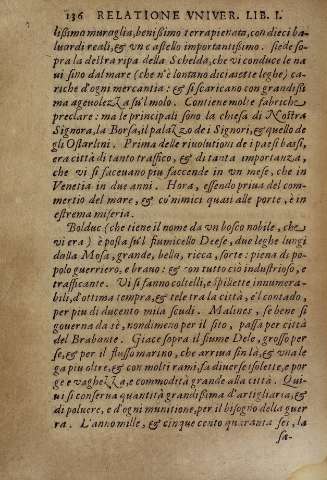 136 RELATIONE VNIVER. LIB. I.
lissima muraglia, benissimo terrapienata, con dieci ba-
luardi reali, & vn castello importantissimo. siede so-
pra la destra ripa della Schelda, che vi conduce le na
ui sino dal mare (che n'è lontano diciasette leghe) ca-
riche d'ogni mercantia: & si scaricano con grandissi
ma ageuolezza su'l molo. Contiene molte fabriche
preclare: ma le principali sono la chiesa di Nostra
Signora, la Borsa, il palazzo de i Signori, & quello de
gli Ostarlini. Prima delle riuolutioni de i paesi bassi,
era città di tanto traffico, & di tanta importanza,
che vi si faceuano piu faccende in vn mese, che in
Venetia in due anni. Hora, essendo priua del com-
mertio del mare, & co'nimici quasi alle porte, è in
estrema miseria.
Bolduc (che tiene il nome da vn bosco nobile, che
vi era) è posta su'l fiumicello Deese, due leghe lungi
dalla Mosa, grande, bella, ricca, forte: piena di po-
polo guerriero, e brauo: & con tutto ciò industrioso, e
trafficante. Vi si fanno coltelli, e spillette innumera-
bili, d'ottima tempra, & tele tra la città, e'l contado,
per piu di ducento mila scudi. Malines, se bene si
gouerna da sè, nondimeno per il sito, passa per città
del Brabante. Giace sopra il fiume Dele, grosso per
se, & per il flusso marino, che arriua fin là, & vna le
ga piu oltre, & con molti rami, fa diuerse isolette, e por
ge e vaghezza, e commodità grande alla città. Qui-
ui si conserua quantità grandissima d'artigliaria, &
di poluere, e d'ogni munitione, per il bisogno della guer
ra. L'anno mille, & cinque cento quaranta sei, la
sa-